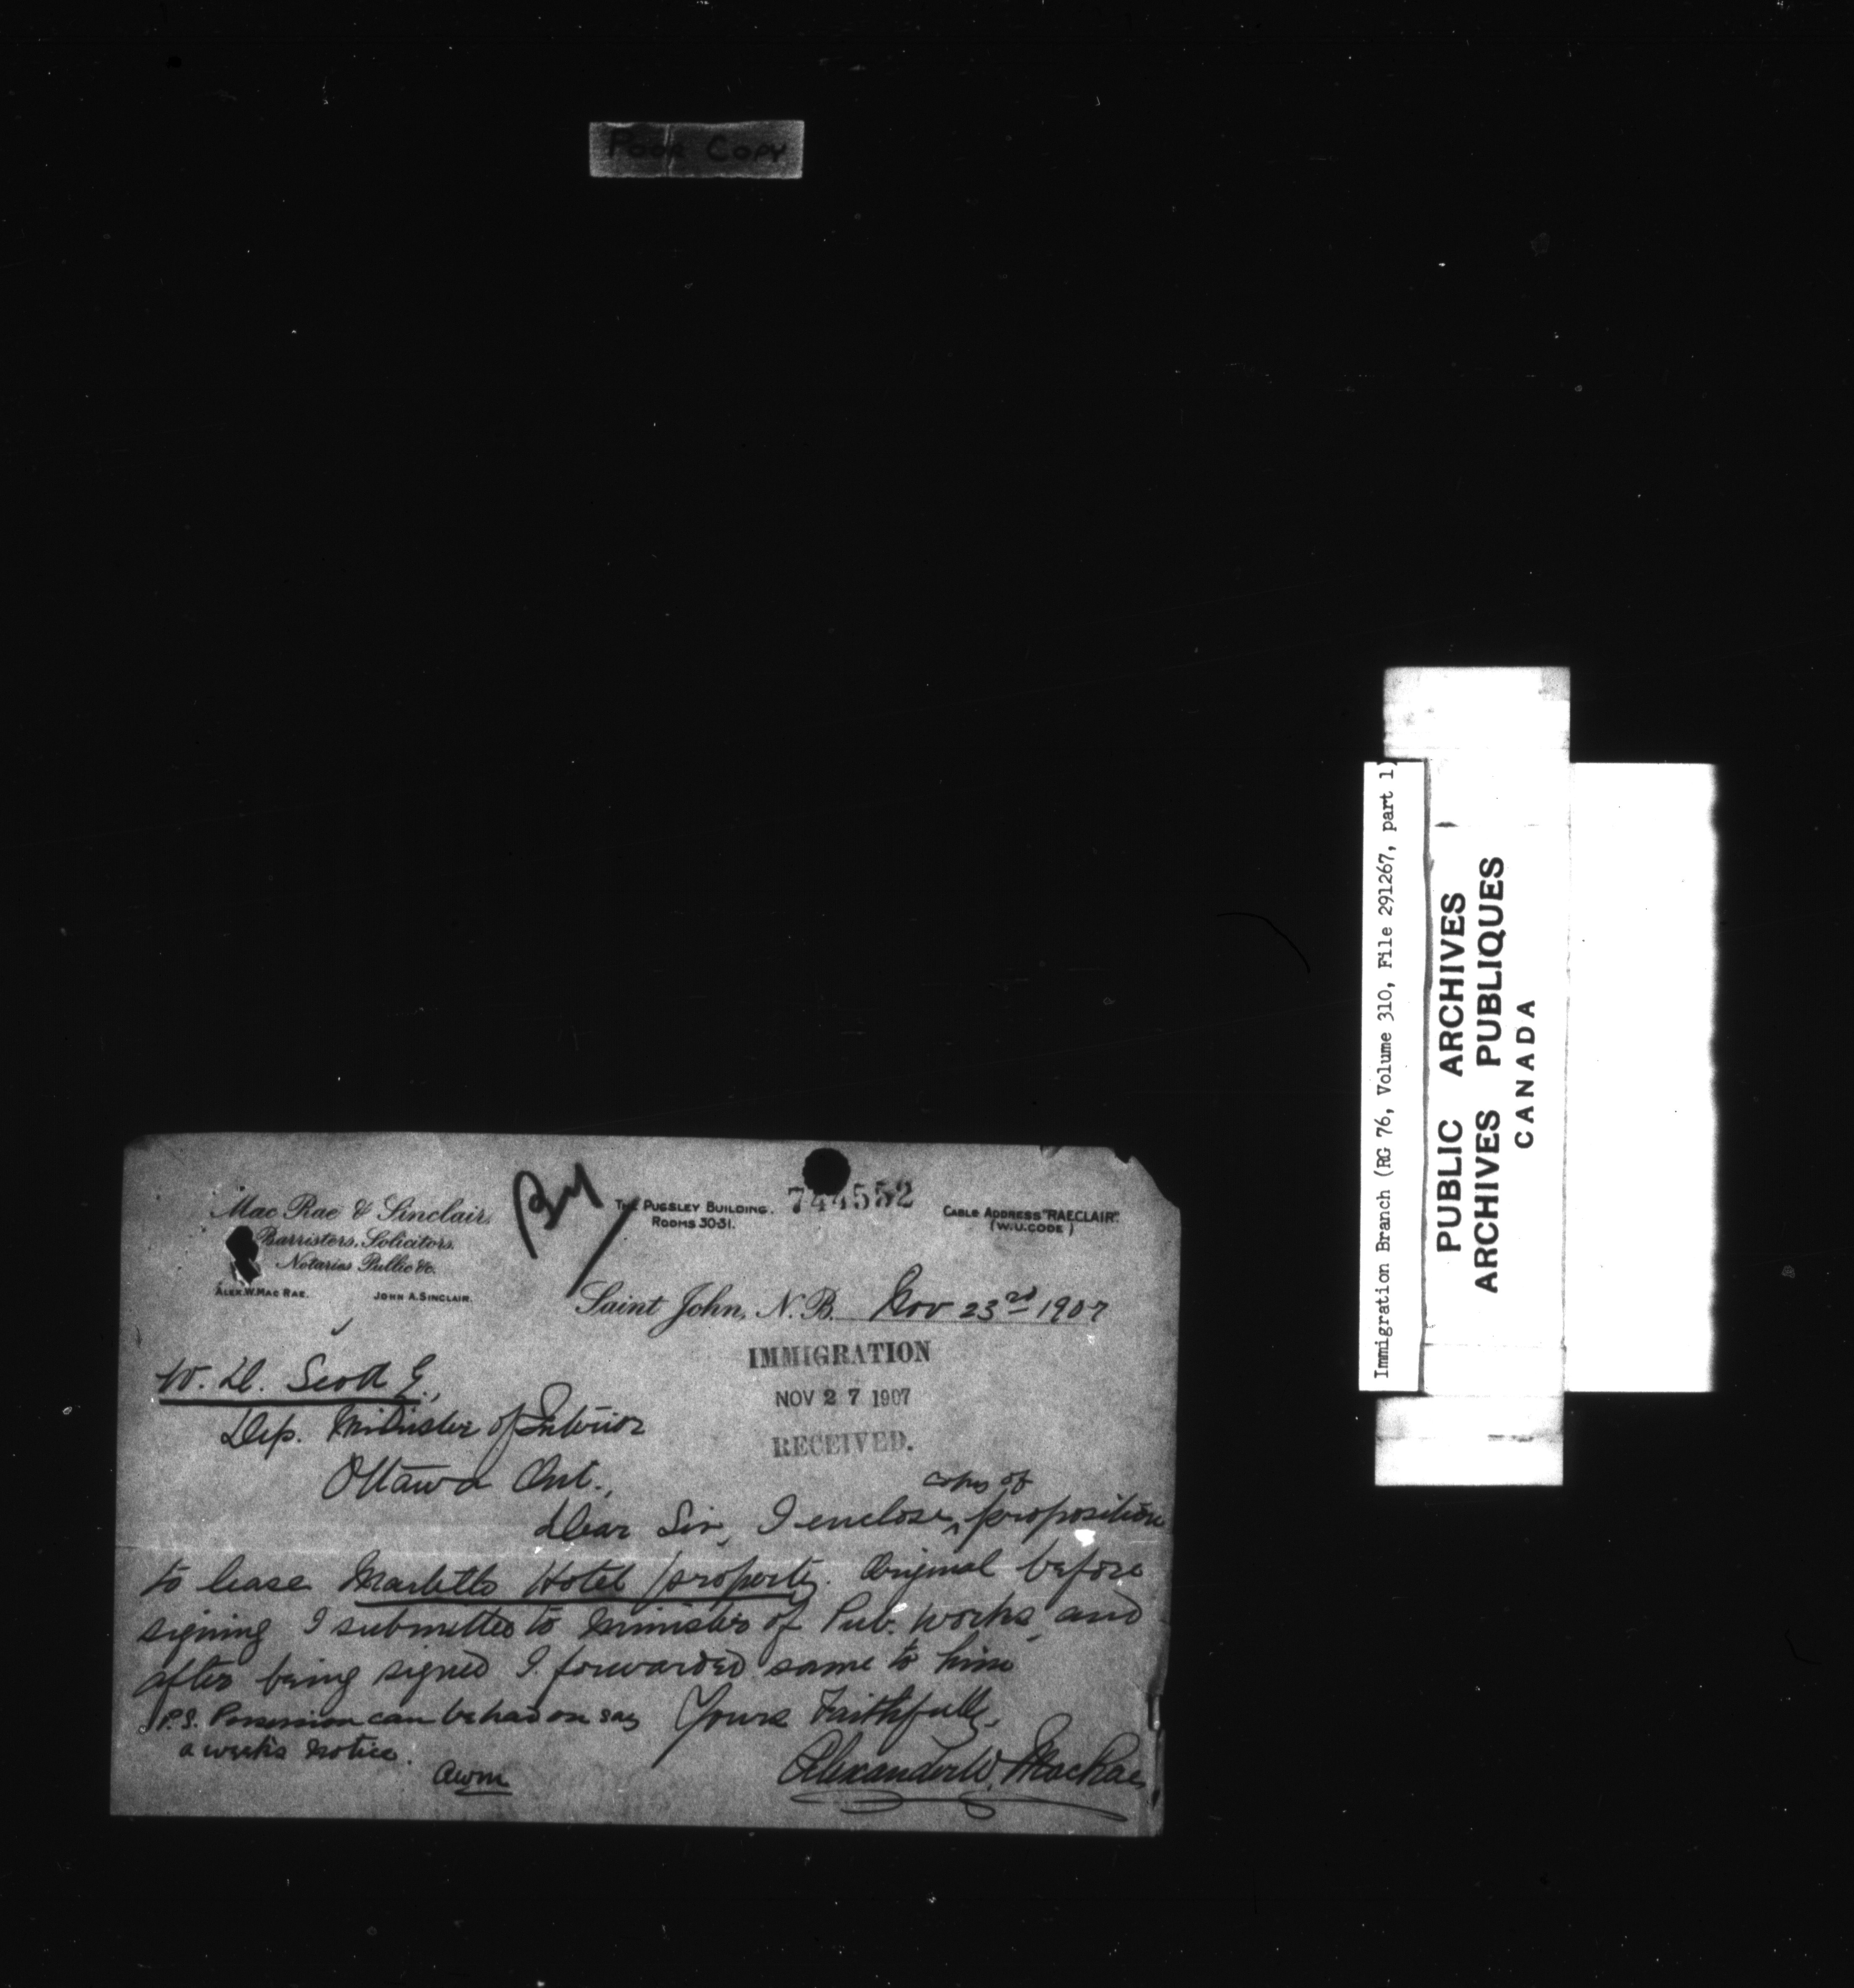 Poor Copy
Mac Rae & Sinclair,
Barristers, Solicitors,
Notaries Public &c.
ALEX. W. MAC RAE. JOHN A. SINCLAIR.
THE PUGSLEY BUILDING.
ROOMS 30-31.
744552
CABLE ADDRESS "RAECLAIR".
(W.U. CODE)
Saint John, N.B. Nov 23rd 1907
IMMIGRATION
NOV 27 1907
RECEIVED.
W. D. Scott E.,
Dep. Minister of Interior
Ottawa Ont.,
copy of
Dear Sir, I enclose ^ proposition
to lease Hotel property. Original before
signing I submitted to Minister of Pub. Works, and
after being signed I forwarded same to him
Yours Faithfully,
Alexander W. MacRae,
P.S. Possession can be had on say
a weeks notice.
AWM
Immigration Branch (RG 76, Volume 310, File 291267, part 1)
PUBLIC ARCHIVES
ARCHIVES PUBLIQUES
CANADA